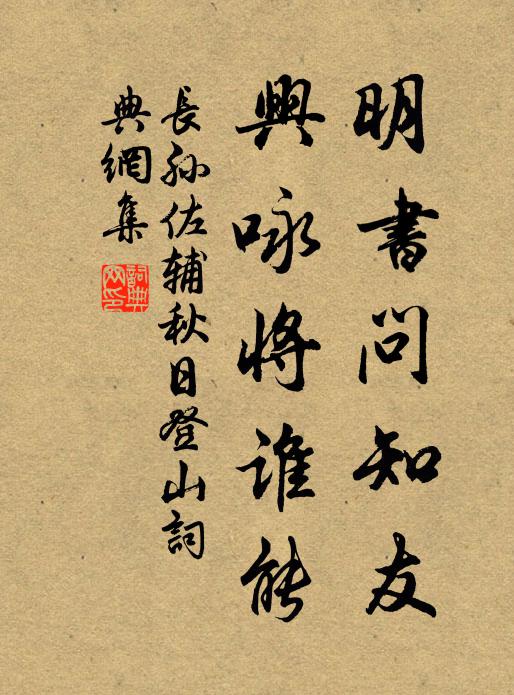 明書問知友
興咏將誰能
長孙佐辅秋日登山詞
典網集
詞典网印